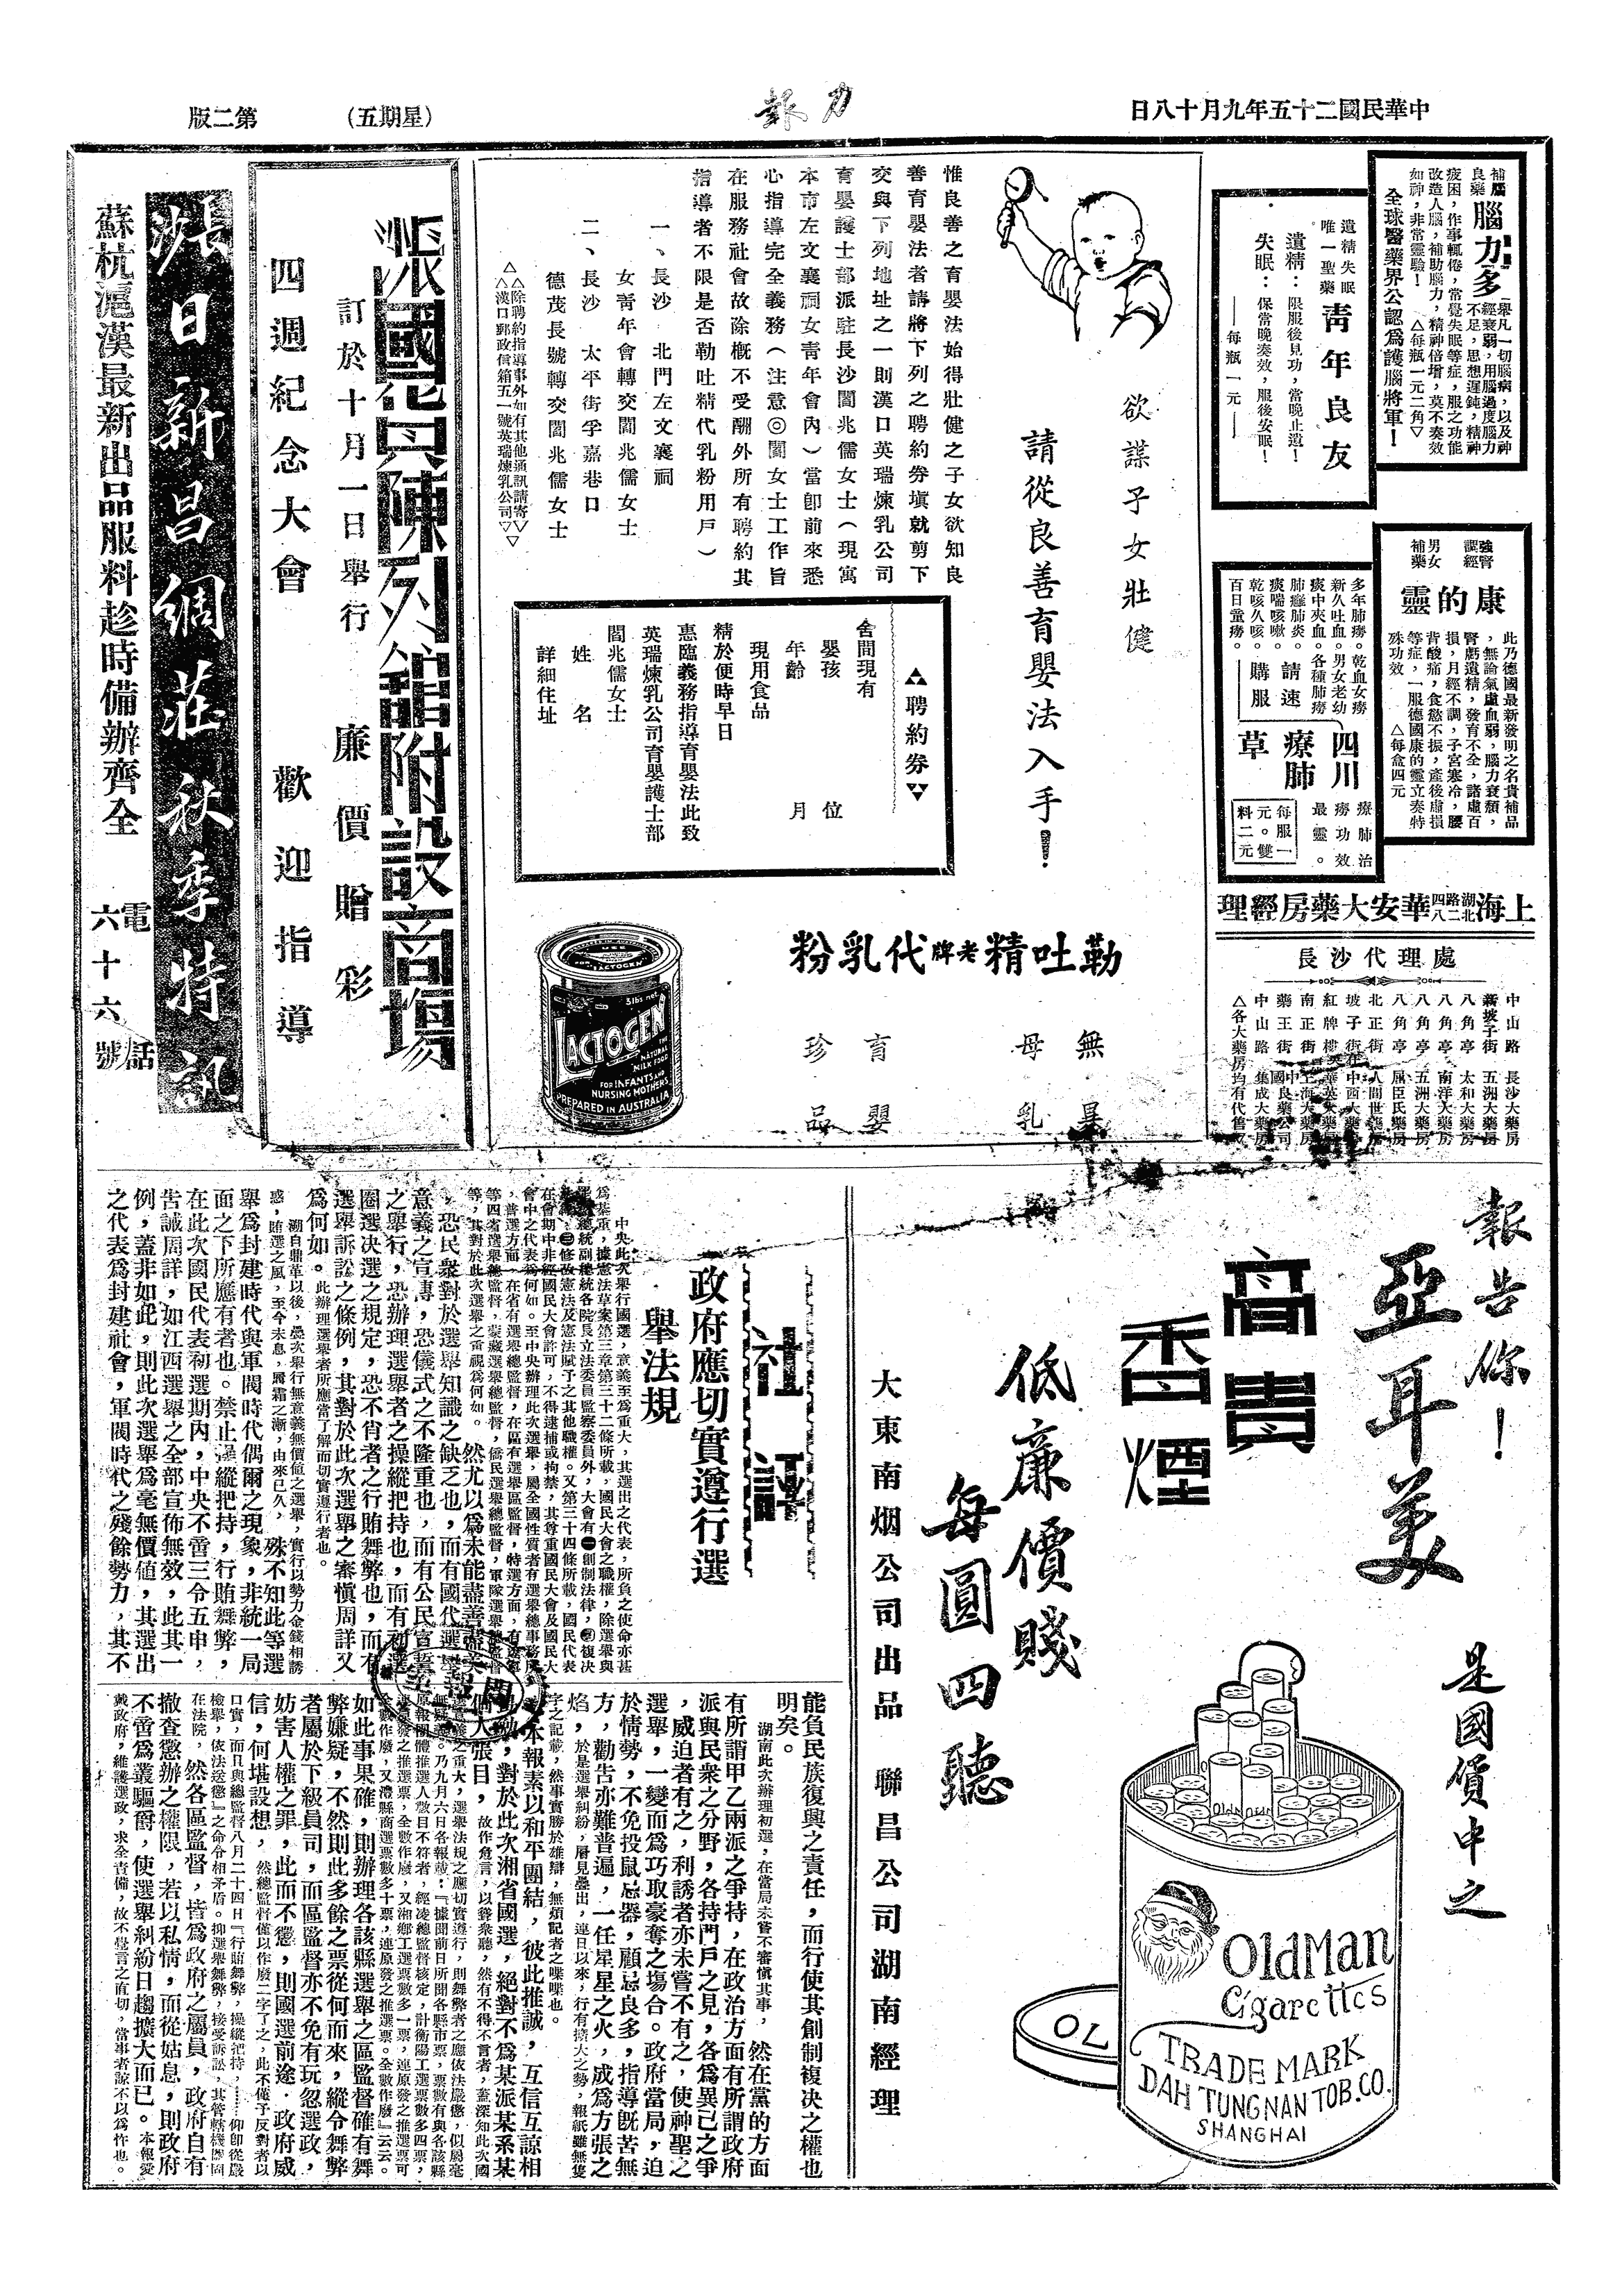 中華民國二十五年九月十八日
力報
（星期五）
第二版
補腦良藥
腦力多
舉凡一切腦病，以及神經衰弱，用腦過度腦力不足，思想遲鈍，精神疲困，作事輒倦，常覺失眠等症，服之功能改造人腦，補助腦力，精神倍增，莫不奏效如神，非常靈驗！
△每瓶一元二角▽
全球醫藥界公認爲護腦將軍！
遺精失眠
唯一聖藥
青年良友
遺精：限服後見功，當晚止遺！
失眠：保當晚奏效，服後安眠！
——每瓶一元——
強腎
調經
男女
補藥
康的靈
此乃德國最新發明之名貴補品
，無論氣虛血弱，腦力衰頹，
腎虧遺精，發育不全，諸虛百
損，月經不調，子宮寒冷，腰
背酸痛，食慾不振，產後虛損
等症，一服德國康的靈立奏特
殊功效
△每盒四元
多年肺癆。乾血女癆
新久吐血。男女老幼
痰中夾血。各種肺癆
肺癰肺炎。
痰喘咳嗽。
乾咳久咳。
百日童癆。
請速
購服
四川
療肺
草
療肺治
癆功效
最靈。
每服一
元。雙
料二元
上海湖北路二四八華安大藥房經理
長沙代理處
中山路 長沙大藥房
新坡子街 五洲大藥房
八角亭 太和大藥房
八角亭 南洋大藥房
八角亭 五洲大藥房
北正街 屈臣氏藥房
坡子街 人間世藥房
紅牌樓 中西大藥房
南正街 華英大藥房
藥王街 上海大藥房
中山路 中國國良藥公司
集成大藥房
△各大藥房均有代售▽
欲謀子女壯健
請從良善育嬰法入手！
惟良善之育嬰法始得壯健之子女欲知良
善育嬰法者請將下列之聘約券塡就剪下
交與下列地址之一則漢口英瑞煉乳公司
育嬰護士部派駐長沙閻兆儒女士（現寓
本市左文襄祠女靑年會內）當卽前來悉
心指導完全義務（注意◎閻女士工作旨
在服務社會故除概不受酬外所有聘約其
指導者不限是否勒吐精代乳粉用戶）
一、長沙 北門左文襄祠
女靑年會轉交閻兆儒女士
二、長沙 太平街孚嘉巷口
德茂長號轉交閻兆儒女士
△△除聘約指導事外如有其他通訊請寄▽▽
△△漢口郵政信箱五一號英瑞煉乳公司▽▽
聘約券
舍間現有
嬰孩 位
年齡 月
現用食品
精於便時早日
惠臨義務指導育嬰法此致
英瑞煉乳公司育嬰護士部
閻兆儒女士
姓名
詳細住址
勒吐精老牌代乳粉
無異
母乳
育嬰
珍品
5 lbs net.
LACTOGEN
NATURAL
MILK FOOD
FOR INFANTS AND
NURSING MOTHERS
PREPARED IN AUSTRALIA
國貨陳列館附設商場
訂於十月一日舉行 廉價贈彩
四週紀念大會 歡迎指導
長沙日新昌綢莊秋季特訊
蘇杭滬漢最新出品服料趁時備辦齊全
電話
六十六號
報告你！
亞耳美
是國貨中之
高貴
香煙
低廉價賤
每圓四聽
大東南烟公司出品 聯昌公司湖南經理
OldMan
Cigarettes
TRADE MARK
DAH TUNGNAN TOB.CO.
SHANGHAI
OL
社評
政府應切實遵行選
舉法規
中央此次舉行國選，意義至爲重大，其選出之代表，所負之使命亦甚
爲綦重，據憲法草案第三章第三十二條所載，國民大會之職權，除選舉與
在會期中非經國民大會許可，不得逮捕或拘禁，其尊重國民大會及國民大
會中之代表爲何如。至中央辦理此次選舉，屬全國性質者有選舉總事務所
等，其對於此次選舉之重視爲何如。 然尤以爲未能盡善盡美
，恐民衆對於選舉知識之缺乏也，而有國代選舉
意義之宣傳，恐儀式之不隆重也，而有公民宣誓
之舉行，恐辦理選舉者之操縱把持也，而有初選
圈選決選之規定，恐不肖者之行賄舞弊也，而有
選舉訴訟之條例，其對於此次選舉之審愼周詳又
爲何如。此辦理選舉者所應當了解而切實遵行者也。
湖自鼎革以後，愚次舉行無意義無價值之選舉，實行以勢力金錢相誘
惑，賄選之風，至今未息，履霜之漸，由來已久， 殊不知此等選
舉爲封建時代與軍閥時代偶爾之現象，非統一局
面之下所應有者也。禁止操縱把持，行賄舞弊，
在此次國民代表初選期內，中央不啻三令五申，
告誡周詳，如江西選舉之全部宣佈無效，此其一
例，蓋非如此，則此次選舉爲毫無價値，其選出
之代表爲封建社會，軍閥時代之殘餘勢力，其不
能負民族復興之責任，而行使其創制複決之權也
明矣。
湖南此次辦理初選，在當局未嘗不審愼其事， 然在黨的方面
有所謂甲乙兩派之爭持，在政治方面有所謂政府
派與民衆之分野，各持門戶之見，各爲異已之爭
，威迫者有之，利誘者亦未嘗不有之，使神聖之
選舉，一變而爲巧取豪奪之場合。政府當局，迫
於情勢，不免投鼠忌器，顧忌良多，指導旣苦無
方，勸告亦難普遍，一任星星之火，成爲方張之
焰，於是選舉糾紛，屢見疊出，連日以來，行有擴大之勢，報紙雖無隻
字之記載，然事實勝於雄辯，無煩記者之喋喋也。
本報素以和平團結，彼此推誠，互信互諒相
，對於此次湘省國選，絕對不爲某派某系某
個大張目，故作危言，以聳衆聽，然有不得不言者，蓋深知此次國
選意義之重大，選舉法規之應切實遵行，則舞弊者之應依法嚴懲，似屬毫
無疑義。乃九月六日各報載：『據聞前日所開各縣市票，票數有與各該縣
原報團體推選人數目不符者，經凌總監督核定，計衡陽工選票數多四票，
連原發之推選票，全數作廢，又湘鄉工選票數多一票，連原發之推選票可
全數作廢，又澧縣商選票數多十票，連原發之推選票。全數作廢』云云。
如此事果確，則辦理各該縣選舉之區監督確有舞
弊嫌疑，不然則此多餘之票從何而來，縱令舞弊
者屬於下級員司，而區監督亦不免有玩忽選政，
妨害人權之罪，此而不懲，則國選前途，政府威
信，何堪設想， 然總監督僅以作廢二字了之，此不僅予反對者以
口實，而且與總監督八月二十四日『行賄舞弊，操縱把持，……仰卽從嚴
檢舉，依法送懲』之命令相矛盾。抑選舉舞弊，接受訴訟，其管轄機關固
在法院， 然各區監督，皆爲政府之屬員，政府自有
撤查懲辦之權限，若以私情，而從姑息，則政府
不啻爲叢驅爵，使選舉糾紛日趨擴大而已。本報愛
戴政府，維護選政，求全責備，故不覺言之直切，當事者諒不以爲忤也。